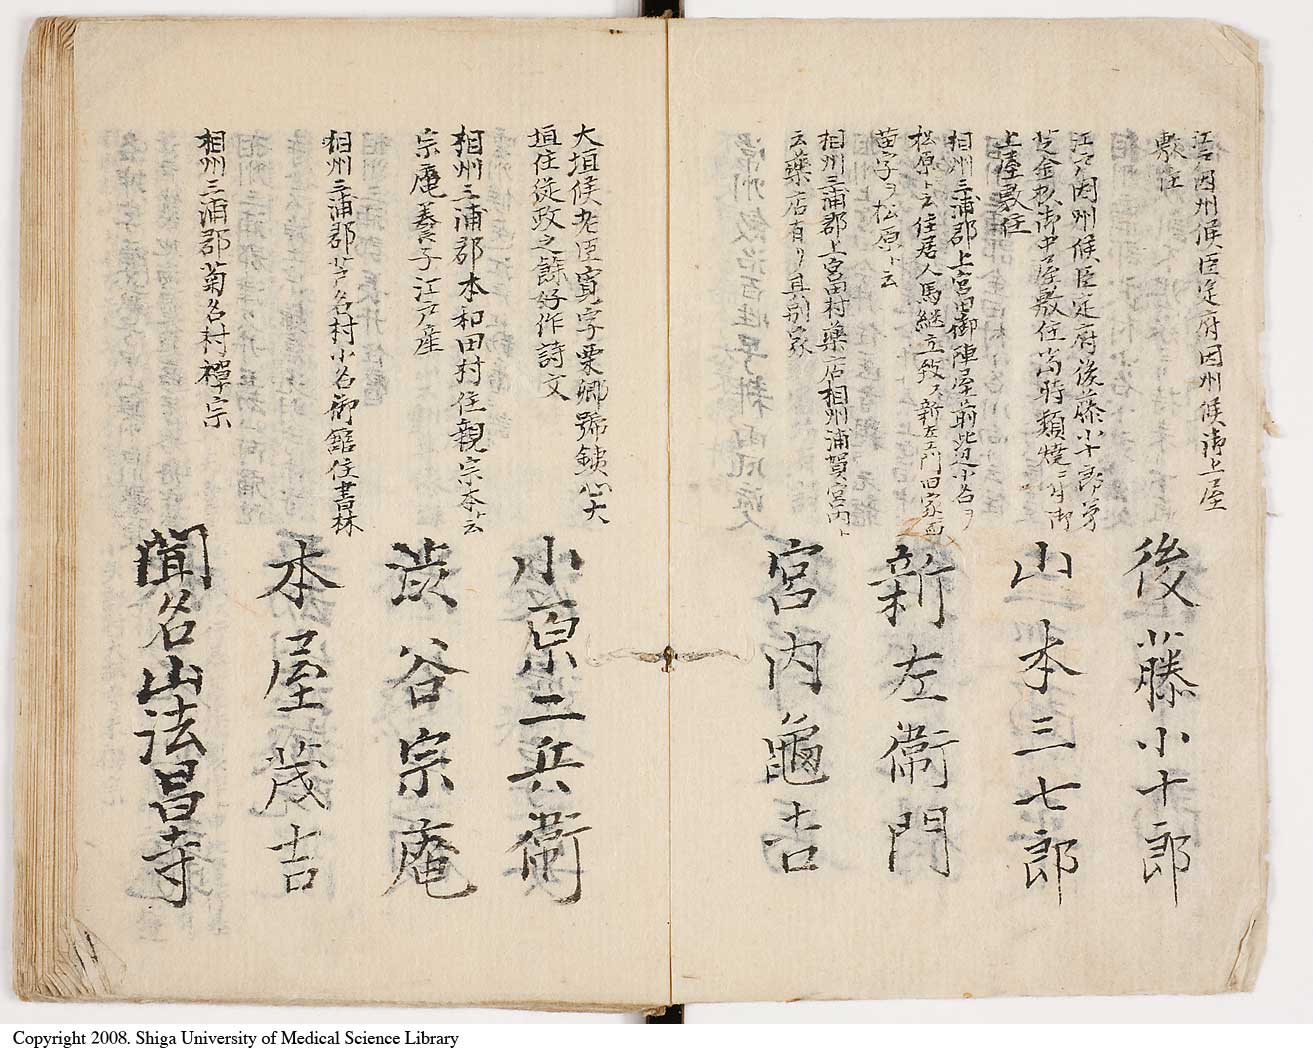 江戸因州候臣定府因州候御上屋
敷住
後藤小十郎
江戸因州候臣定府後藤小十郎弟
芝金杉御中屋敷住当時類焼ニ付御
上屋敷住
山本三七郎
相州三浦郡上宮田御陣屋前此辺小名ヲ
松原ト云住居人馬継立致ス新左衛門旧家而
苗字ヲ松原ト云
新左衛門
相州三浦郡上宮田村薬店相州浦賀宮内ト
云薬店有リ其別家
宮内亀吉
大垣候老臣寛字栗卿號鉄心大
垣住従政之餘好作詩文
小原二兵衛
相州三浦郡本和田村住親宗本ト云
宗庵養子江戸産
渋谷宗庵
相州三浦郡芦名村小名御館住書林
本屋茂吉
相州三浦郡菊名村禪宗
聞名山法昌寺
Copyright 2008. Shiga University of Medical Science Library